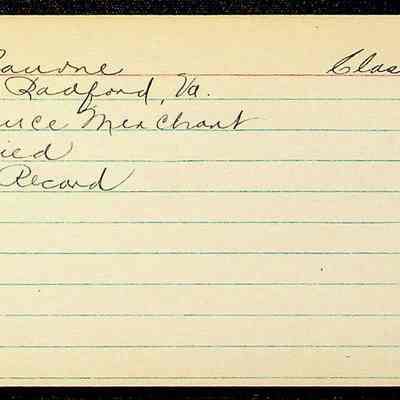 Clas
Radford, Va.
uce Merchant
ied
Record